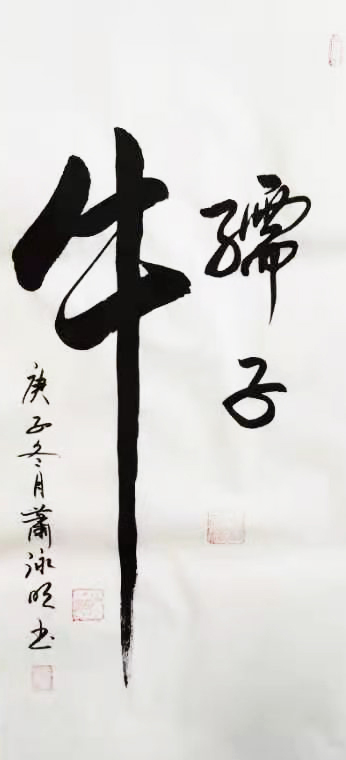 孺子
牛
庚子冬月萧泳明书